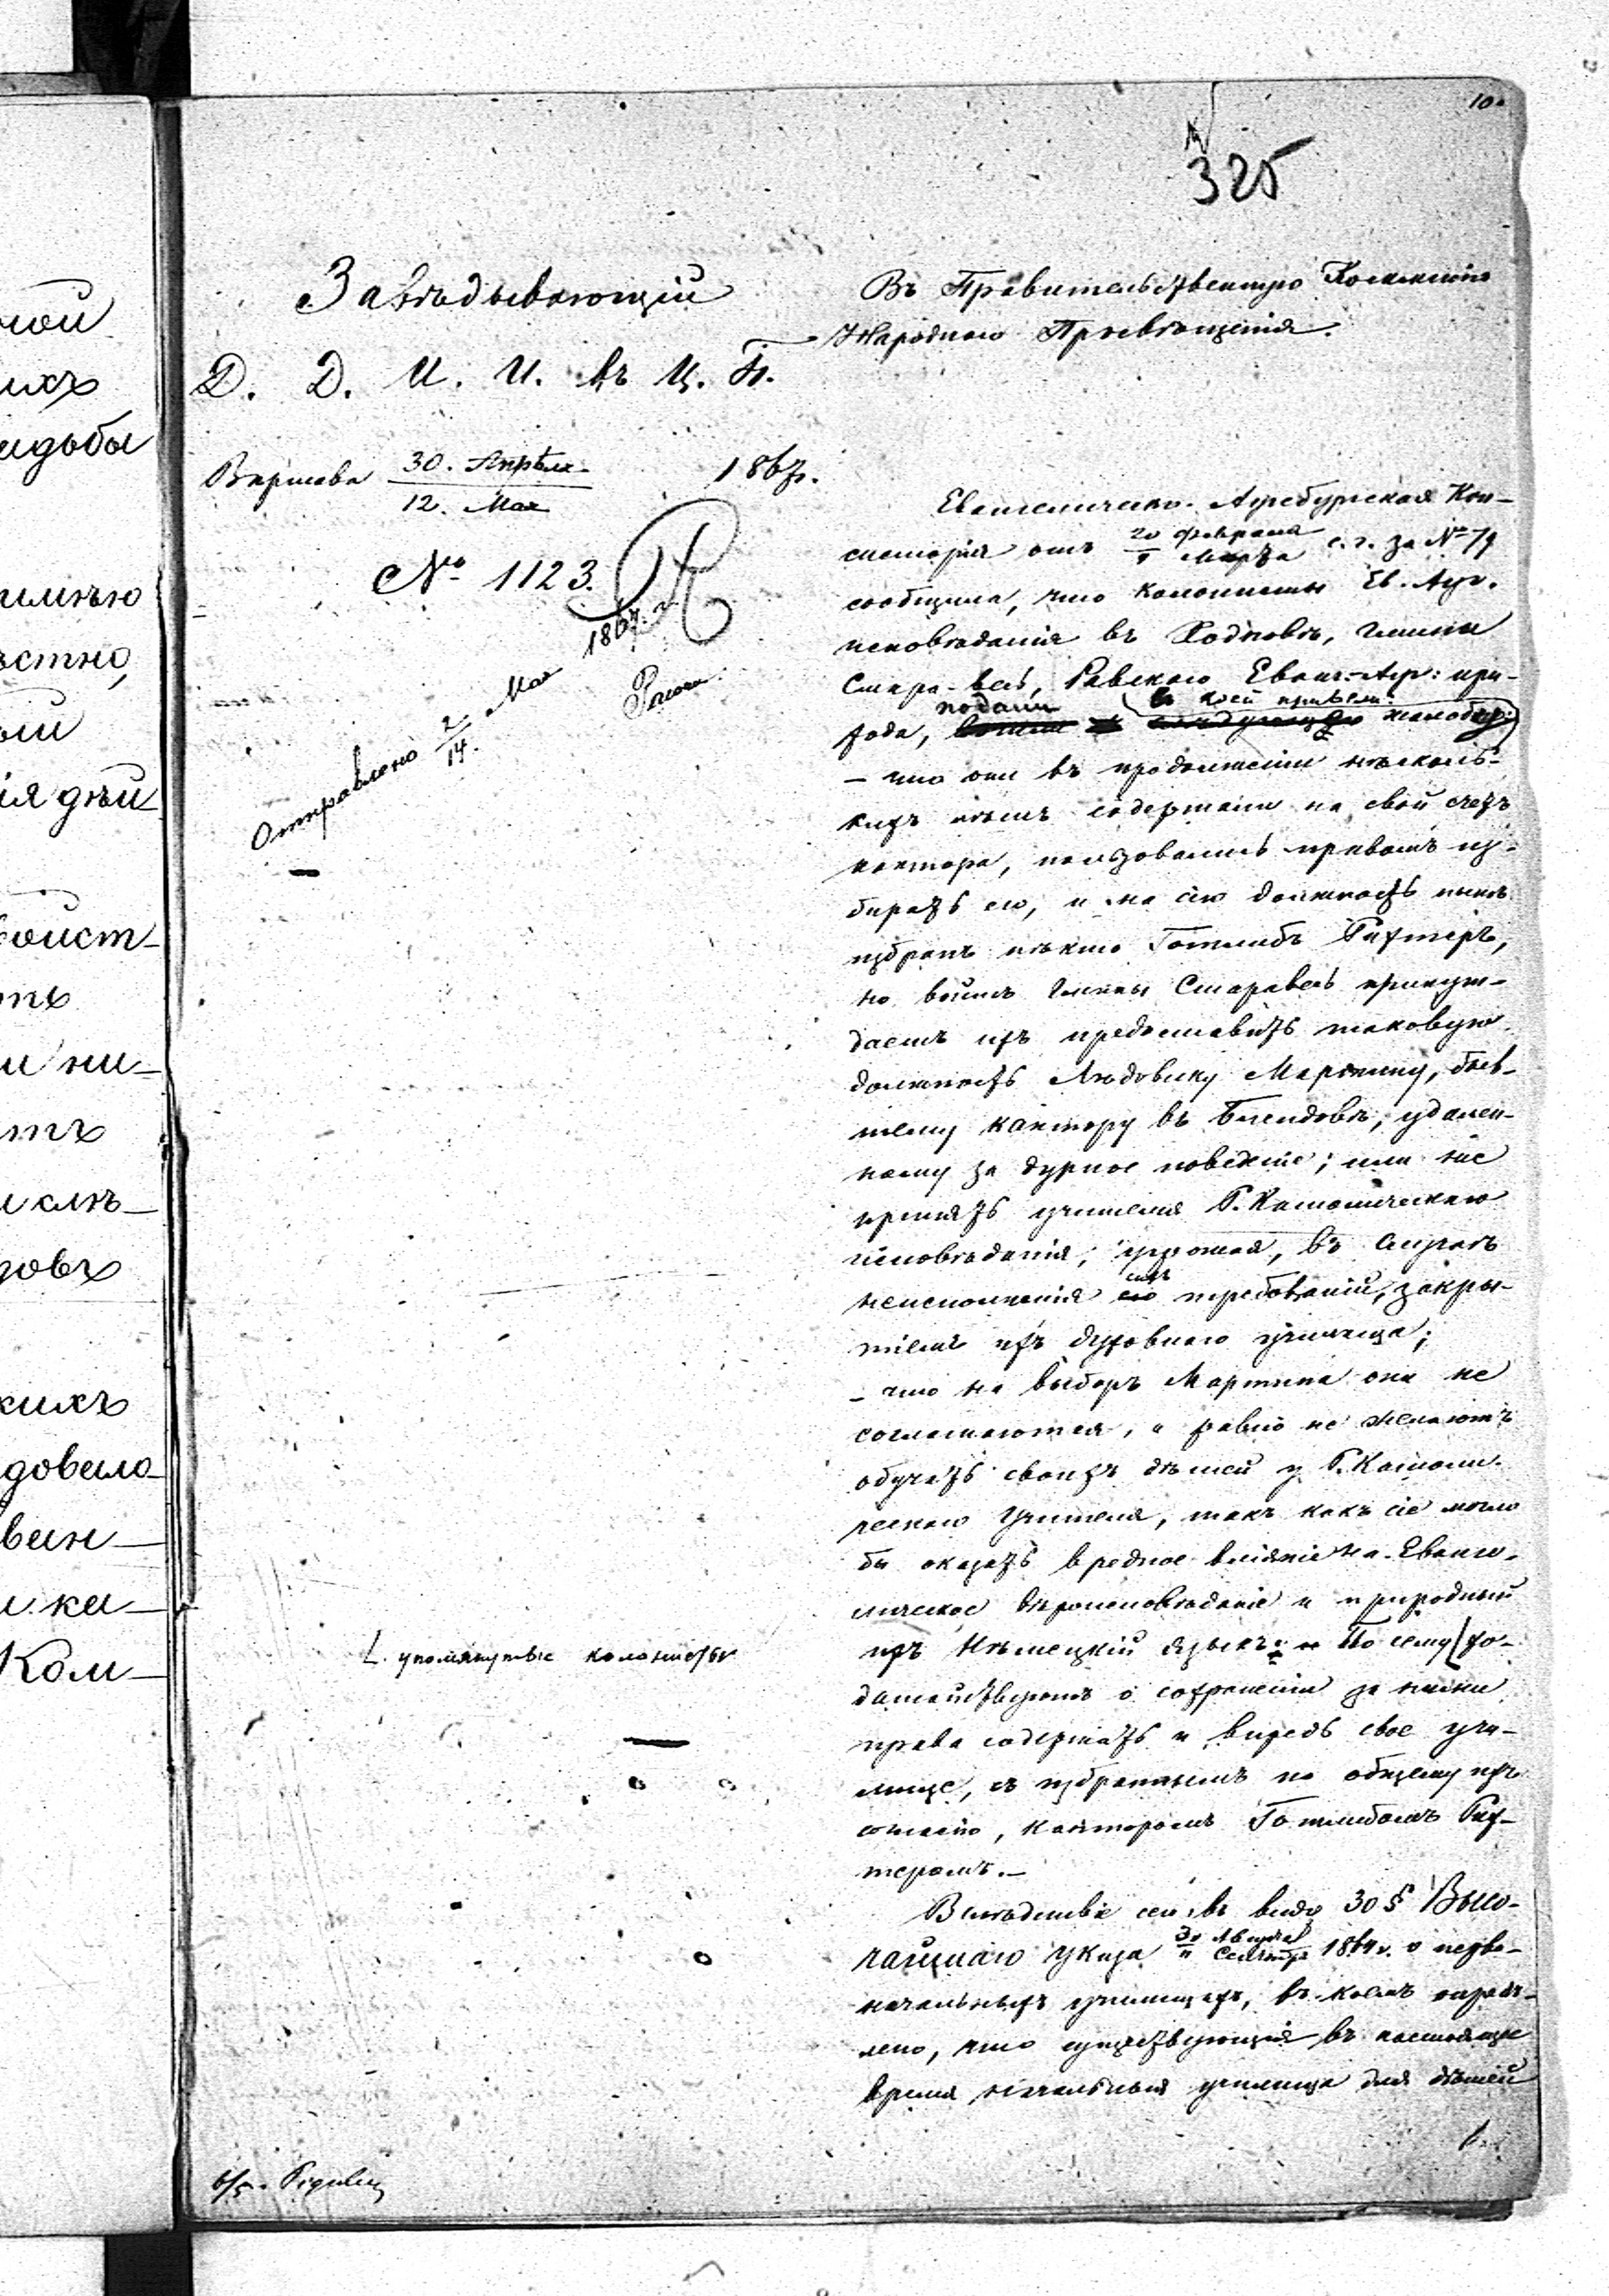 10
325
Завѣдывающій
Д. Д. И. И. въ Ц. П.
Варшава 30. Апрѣля 1867г.
12. Мая
№ 1123.
Отправлено 2/14. Мая 1867. г.
Въ Правительственную Коммисію
Народнаго Просвѣщенія.
Евангелическо-Аугсбургская Кон-
систорія отъ 20 Февраля / Марта с. г. за № 79
сообщила, что колонисты Ев. Ауг.
исповѣданія въ Ходновѣ, гмины
Стара-весь, Равскаго Еванг-Ауг: при-
хода, подали въ коей привели жалобу
– что они въ продолженіи нѣсколь-
кихъ лѣтъ содержали на свой счетъ
кантора, пользовались правомъ из-
бирать его, и на сію должность нынѣ
избранъ нѣкто Готлибъ Рихтеръ,
но войтъ гмины Старавесь принуж-
даетъ ихъ предоставить таковую
должность Людовику Мартину, быв-
шему кантору въ Блендовѣ, удален-
ному за дурное поведеніе; или же
принять учителя Р. Католическаго
исповѣданія, угрожая, въ случаѣ
неисполненія сихъ требованій, закры-
тіемъ ихъ духовнаго училища;
– что на выборъ Мартина они не
соглашаются, и равно не желаютъ
обучать своихъ дѣтей у Р. Католи-
ческаго учителя, такъ какъ сіе могло
бы оказать вредное вліяніе на Еванге-
лическое вѣроисповѣданіе и природный
ихъ Нѣмецкій языкъ. По сему хо-
L упомянутые колонисты
датайствуютъ о сохраненіи за ними
права содержать и впредь свое учи-
лище, съ избраннымъ по общему ихъ
согласію, канторомъ Готлибомъ Рих-
теромъ.–
Вслѣдствіе сего въ виду 30 § Высо-
чайшаго указа 30 Августа / 11 Сентября 1864 г. о перво-
начальныхъ училищахъ, въ коемъ опредѣ-
лено, что существующія въ настоящее
время начальныя училища для дѣтей